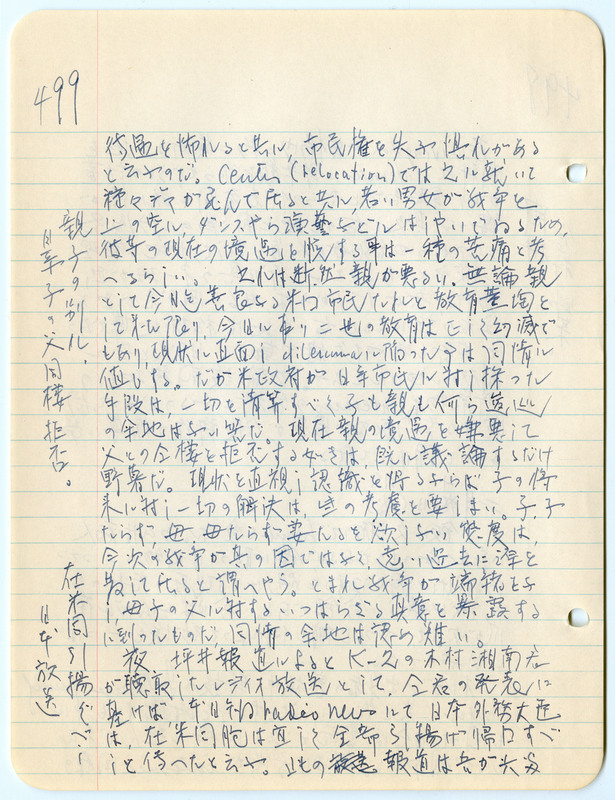 499
待遇を怖れると共に、市民権を失ふ惧れがある
と云ふのだ。Center (Relocation)では之に就いて
種々デマが飛んで居ると共に、若い男女が戦争を
上の空に、ダンスやら演藝などに
彼等の現在の境遇を脱する事は一種の苦痛と考
へるらしい。之れは断然親が悪るい。無論親
として今日迄善良なる米国市民たれと教育薫陶を
して来た限り、今日に於り二世の教育は正しく幻滅で
もあり、現状に直面し dilemmaに陥った子は同情に
値もする。だが米政府が日系市民に対し採った
手段は、一切を清算すべく子も親も何ら逡巡
の余地はない筈だ。現在親の境遇を嫌悪して
父との同棲を拒否する如きは、既に議論するだけ
野暮だ。現状を直視し認識を得るならば子の将
来に対し一切の解決は、些の考慮を要しまい。子、子
たらず、母、母たらず妻たるを欲しない態度は、
今次の戦争が其の因ではなく、遠い過去に淫を
して居ると謂へやう。ともあれ戦争が端緒を与
へ、母子の父に対するいつはらざる真意を暴露する
に到ったものだ、同情の余地は認め難い。
夜、坪井報道によると K-2の木村湘南君
が聴取したレヂオ放送として、仝君の発表に
基けば 本日朝 radio newsにて日本外務大臣
は、在米同胞は宜しく全部引揚げ帰国すべ
しと傳へたと云ふ。此の報道は吾が
親子の別れ、
母子の父同棲拒否。
在米同胞引揚ぐべし
日本放送